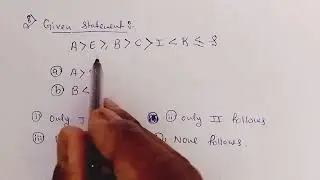 Given statement:-
A > E ≥ B > C > I < K ≤ S
(a) A >
(b) B <
i) only I ii) only II follows
iii) None follows.